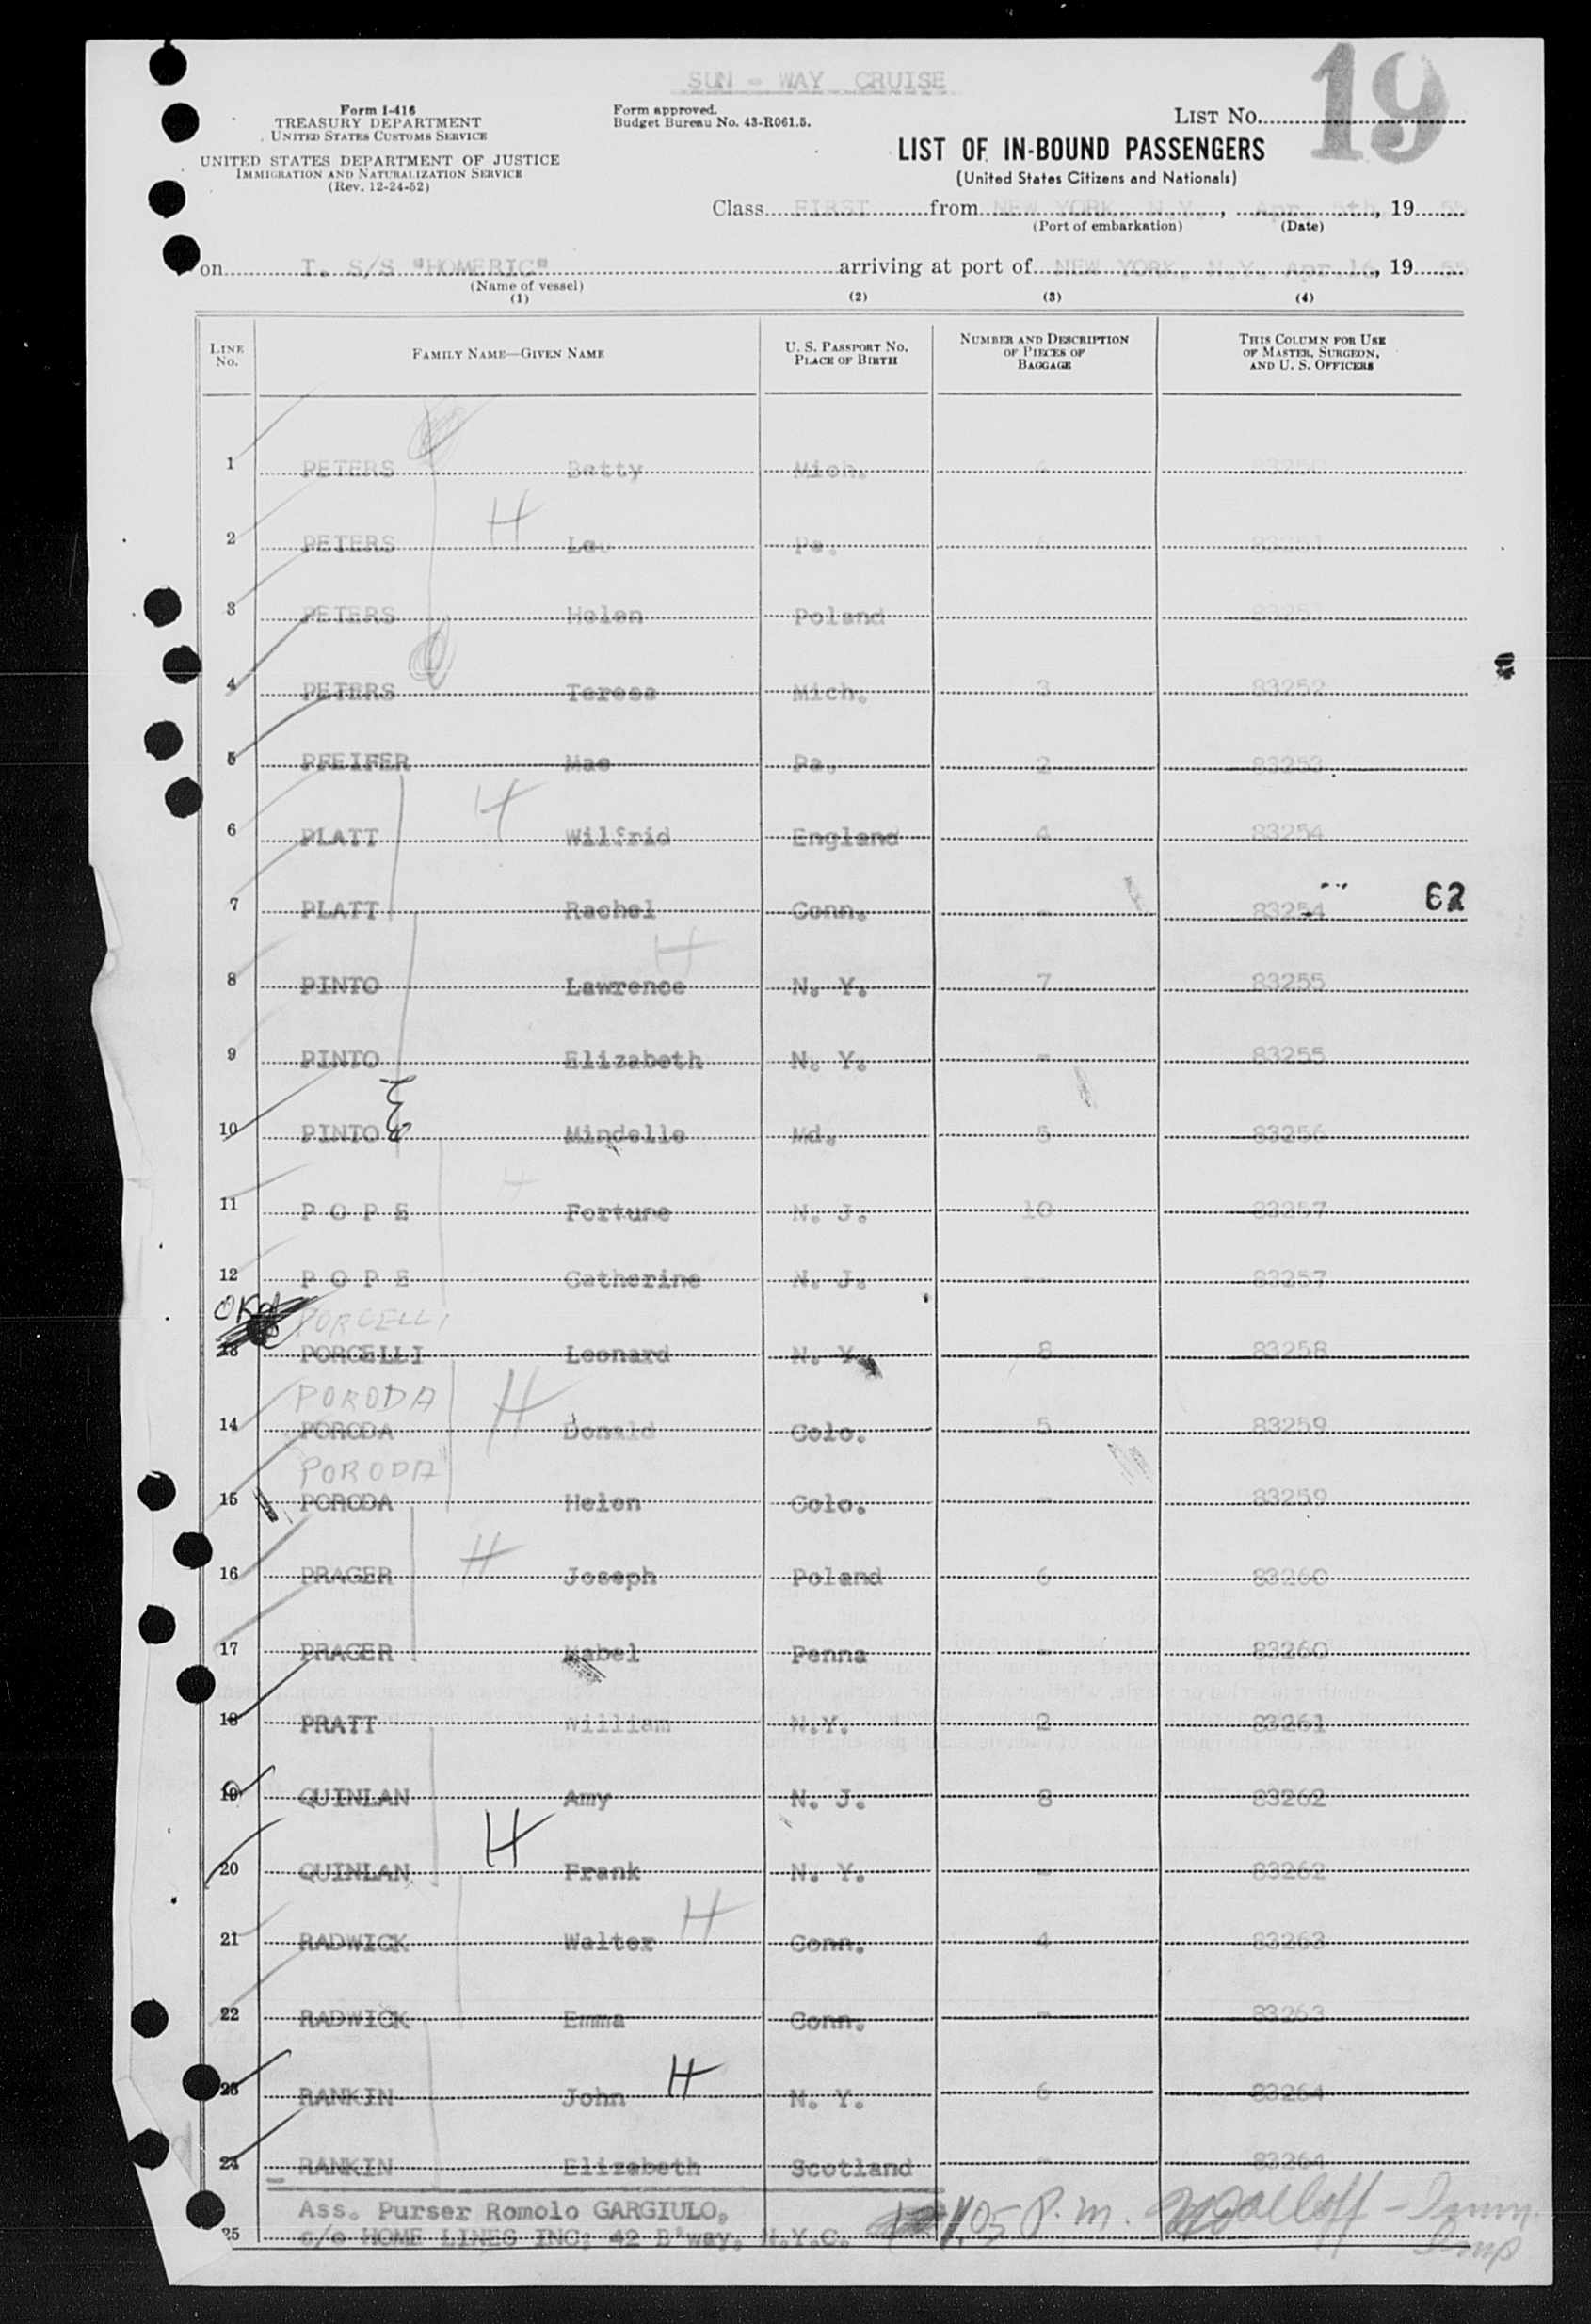 SUN - WAY CRUISE
19
Form I-416
TREASURY DEPARTMENT
UNITED STATES CUSTOMS SERVICE
UNITED STATES DEPARTMENT OF JUSTICE
IMMIGRATION AND NATURALIZATION SERVICE
(Rev. 12-24-52)
Form approved.
Budget Bureau No. 43-R061.5.
LIST No.
LIST OF IN-BOUND PASSENGERS
(United States Citizens and Nationals)
Class FIRST from NEW YORK, N.Y., Apr. 5th, 19 55
(Port of embarkation) (Date)
on T. S/S "HOMERIC" arriving at port of NEW YORK, N.Y. Apr.16, 19 55
(Name of vessel)
(1) (2) (3) (4)
LINE No. FAMILY NAME—GIVEN NAME U. S. PASSPORT No. PLACE OF BIRTH NUMBER AND DESCRIPTION OF PIECES OF BAGGAGE THIS COLUMN FOR USE OF MASTER, SURGEON, AND U. S. OFFICERS
1 PETERS Betty Mich.
H
2 PETERS Leo Pa. 83251
3 PETERS Helen Poland 83251
4 PETERS Teresa Mich. 3 83252
5 PFEIFER Mae Pa. 2 83253
H
6 PLATT Wilfrid England 4 83254
7 PLATT Rachel Conn. - 83254 62
H
8 PINTO Lawrence N. Y. 7 83255
9 PINTO Elizabeth N. Y. - 83255
10 PINTO Mindelle Md. 5 83256
H
11 P O P E Fortune N. J. 10 83257
12 P O P E Catherine N. J. -- 83257
OK PORCELLI
13 PORCELLI Leonard N. Y. 8 83258
PORODA H
14 PORODA Donald Colo. 5 83259
PORODA
15 PORODA Helen Colo. - 83259
H
16 PRAGER Joseph Poland 6 83260
17 PRAGER Mabel Penna - 83260
18 PRATT William N.Y. 2 83261
19 QUINLAN Amy N. J. 8 83262
H
20 QUINLAN Frank N. Y. - 83262
H
21 RADWICK Walter Conn. 4 83263
22 RADWICK Emma Conn. - 83263
H
23 RANKIN John N. Y. 6 83264
24 RANKIN Elizabeth Scotland - 83264
Ass. Purser Romolo GARGIULO,
25 c/o HOME LINES INC; 42 B'way, N.Y.C. 1.05 P.m.